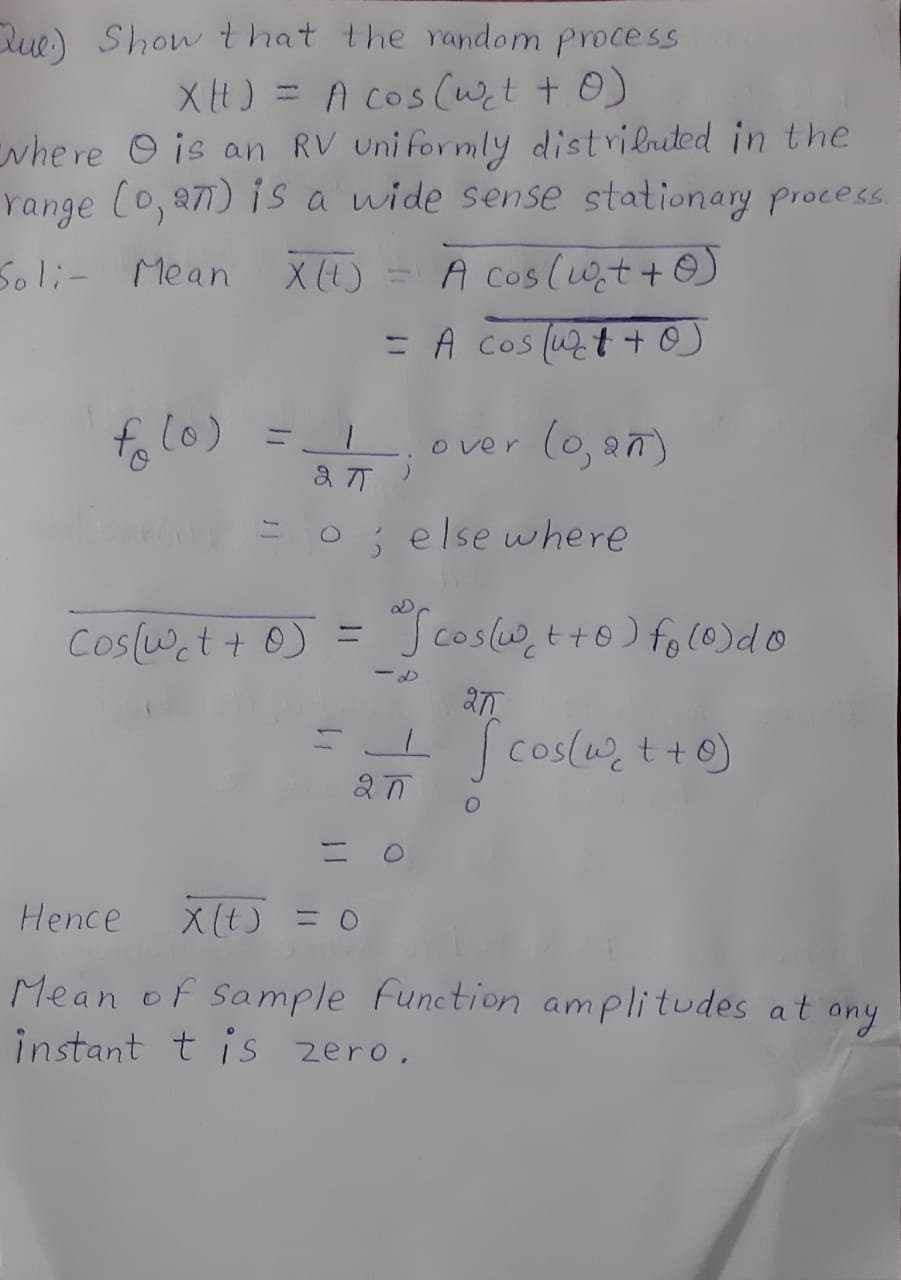 Que.) Show that the random process
X(t) = A cos(ω_c t + θ)
where θ is an RV uniformly distributed in the
range (0, 2π) is a wide sense stationary process.
Sol:- Mean X̅(̅t̅)̅ = A̅ ̅c̅o̅s̅(̅ω̅_̅c̅ ̅t̅ ̅+̅ ̅θ̅)̅
= A c̅o̅s̅(̅ω̅_̅c̅ ̅t̅ ̅+̅ ̅θ̅)̅
f_θ(θ) = 1/2π ; over (0, 2π)
= 0 ; elsewhere
c̅o̅s̅(̅ω̅_̅c̅ ̅t̅ ̅+̅ ̅θ̅)̅ = ∫_{-∞}^{∞} cos(ω_c t + θ) f_θ(θ) dθ
= 1/2π ∫_0^{2π} cos(ω_c t + θ)
= 0
Hence X̅(̅t̅)̅ = 0
Mean of sample function amplitudes at any
instant t is zero.